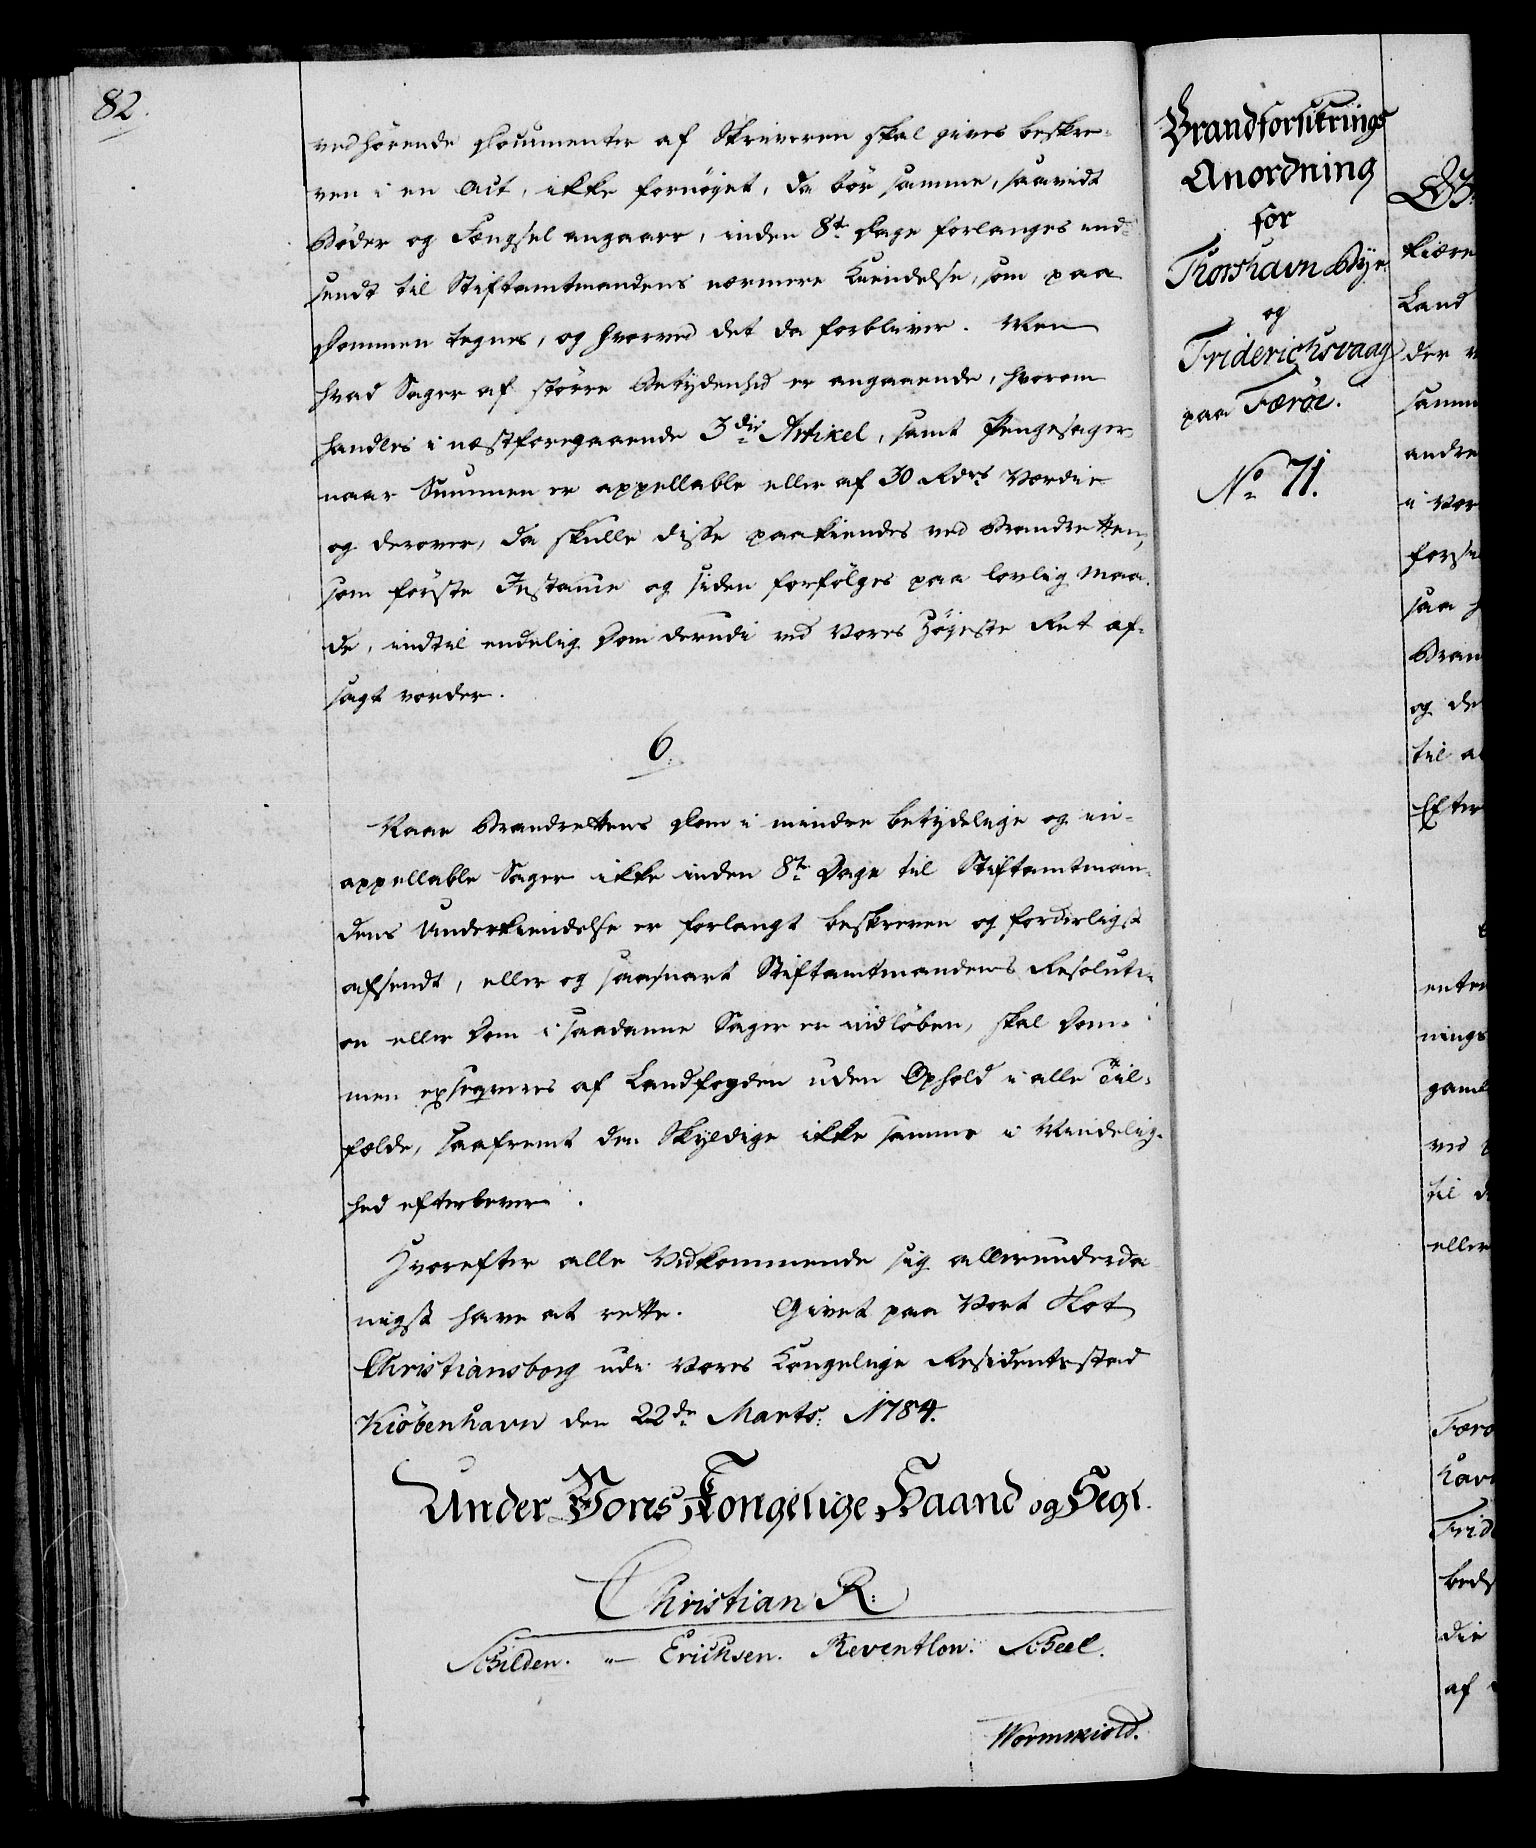 82.
ved hörende Documenter af Skriveren skal gives beskre-
ven i en Act, ikke fornöyet, da bör samme, saavidt
Böder og Fængsel angaaer, inden 8te Dage forlanges ind-
sendt til Stiftamtmandens nærmere Kiendelse, som paa
Dommen tegnes, og hvorved det da forbliver. Men
hvad Sager af större Betydenhed er angaaende, hvorom
handles i næstforegaaende 3die Artikel, samt Pengesager
naar Summen er appellable eller af 30 Rdrs Værdie
og derover, da skulle disse paakiendes ved Brandretten,
som förste Instance og siden forfölges paa lovlig Maa-
de, indtil endelig Dom derudi ved Vores Höyeste Ret af-
sagt vorder.
6.
Naar Brandrettens Dom i mindre betydelige og in-
appellable Sager ikke inden 8te Dage til Stiftamtman-
dens Underkiendelse er forlangt beskreven og forderligst
afsendt, eller og saasnart Stiftamtmandens Resoluti-
on eller Dom i saadanne Sager er indlöben, skal Dom-
men exseqveres af Landfogden uden Ophold i alle Til-
fælde, saafremt den Skyldige ikke samme i Mindelig-
hed efterlever.
Hvorefter alle Vedkommende sig allerunderda
nigst have at rette. Givet paa Vort Slot
Christiansborg udi Vores Kongelige Residentzstad
Kiöbenhavn den 22de Marts: 1784.
Under Vores Kongelige Haand og Segl.
Christian R:
Schilden. Erichsen. Reventlow. Scheel.
Wormskiold.
Brandforsikrings
Anordning
for
Thorshavn Bye
og
Friderichsvaag
paa Færöe.
No 71.
kiære
Land
der
samm
andre
i Vor
forsi
saa
Bran
og de
til al
Efter
enten
nings
gaml
ved
til d
eller
Færö
havn
Frid
beds
die
af